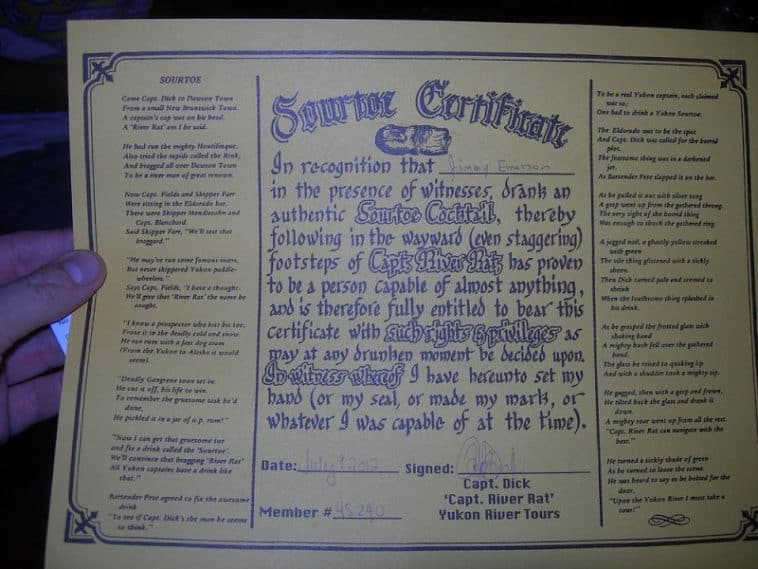 SOURTOE
Came Capt. Dick to Dawson Town
From a small New Brunswick Town.
A captain's cap was on his head.
A "River Rat" am I he said.
He had run the mighty Houtlinque,
Also tried the rapids called the Rink,
And bragged all over Dawson Town
To be a river man of great renown.
Now Capt. Fields and Skipper Farr
Were sitting in the Eldorado bar.
There were Skipper Mendlesohn and
Capt. Blanchard
Said Skipper Farr, "We'll test that
braggard."
"He may've run some famous rivers,
But never skippered Yukon paddle-
wheelers."
Says Capt. Fields, "I have a thought.
We'll give that 'River Rat' the name he
sought.
"I know a prospector who lost his toe,
Froze it in the deadly cold and snow
He run rum with a fast dog team
(From the Yukon to Alaska it would
seem).
"Deadly Gangrene soon set in
He cut it off, his life to win
To remember the gruesome task he'd
done,
He pickled it in a jar of o.p. rum!"
"Now I can get that gruesome toe
and fix a drink called the 'Sourtoe'.
We'll convince that bragging 'River Rat'
All Yukon captains have a drink like
that."
Bartender Pete agreed to fix the awesome
drink
"To see if Capt. Dick's the man he seems
to think."
Sourtoe Certificate
In recognition that Jimmy Emerson
in the presence of witnesses, drank an
authentic Sourtoe Cocktail, thereby
following in the wayward (even staggering)
footsteps of Capt. River Rat, has proven
to be a person capable of almost anything,
and is therefore fully entitled to bear this
certificate with such rights & privileges as
may at any drunken moment be decided upon.
In witness whereof I have hereunto set my
hand (or my seal, or made my mark, or
whatever I was capable of at the time).
Date: July 9 2012 Signed:
Capt. Dick
'Capt. River Rat'
Yukon River Tours
Member # 45240
To be a real Yukon captain, each claimed
was so;
One had to drink a Yukon Sourtoe.
The Eldorado was to be the spot
And Capt. Dick was called for the horrid
plot.
The fearsome thing was in a darkened
jar.
As Bartender Pete slapped it on the bar.
As he pulled it out with silver tong
A gasp went up from the gathered throng.
The very sight of the horrid thing
Was enough to shock the gathered ring.
A jagged nail, a ghostly yellow streaked
with green
The vile thing glistened with a sickly
sheen.
Then Dick turned pale and seemed to
shrink
When the loathsome thing splashed in
his drink.
As he grasped the frosted glass with
shaking hand
A mighty hush fell over the gathered
band.
The glass he raised to quaking lip
And with a shudder took a mighty sip.
He gagged, then with a gasp and frown,
He tilted back the glass and drank it
down.
A mighty roar went up from all the rest.
"Capt. River Rat can navigate with the
best."
He turned a sickly shade of green
As he turned to leave the scene.
He was heard to say as he bolted for the
door,
"Upon the Yukon River I must take a
tour!"